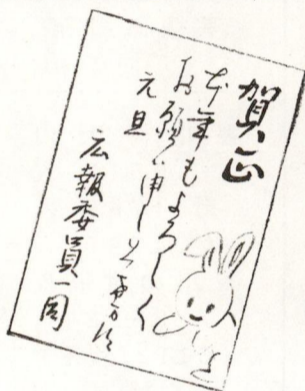 賀正
本年もよろしく
お願い申し上げます
元旦
広報委員一同